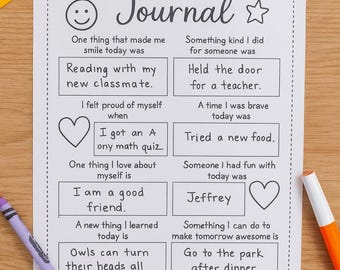 Journal
One thing that made me
smile today was
Something kind I did
for someone was
Reading with my
new classmate.
Held the door
for a teacher.
I felt proud of myself
when
A time I was brave
today was
I got an A
ony math quiz.
Tried a new food.
One thing I love about
myself is
Someone I had fun with
today was
I am a good
friend.
Jeffrey
A new thing I learned
today is
Something I can do to
make tomorrow awesome is
Owls can turn
their heads all
Go to the park
after dinner